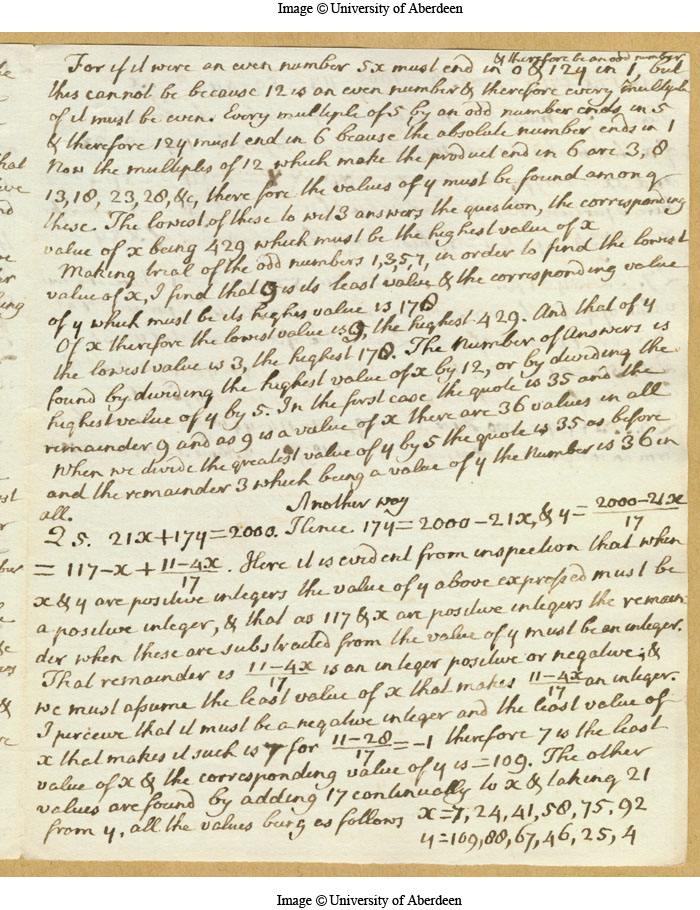 Image © University of Aberdeen
& therefore be an odd number
For if it were an even number 5x must end in 0 & 12y in 1, but
this cannot be because 12 is an even number & therefore every multiple
of it must be even. Every multiple of 5 by an odd number ends in 5
& therefore 12y must end in 6 beause the absolute number ends in 1
Now the multiples of 12 which make the product end in 6 are 3, 8
13, 18, 23, 28, &c, therefore the values of y must be found among
these. The lowest of these to wit 3 answers the question, the corresponding
value of x being 429 which must be the highest value of x
Making trial of the odd numbers 1, 3, 5, 7, in order to find the lowest
value of x, I find that 9 is its least value & the corresponding value
of y which must be its highes value is 178
Of x therefore the lowest value is 9, the highest 429. And that of y
the lowest value is 3, the highest 178. The Number of Answers is
found by dividing the highest value of x by 12, or by dividing the
highest value of y by 5. In the first case the quote is 35 and the
remainder 9 and as 9 is a value of x there are 36 values in all
When we divide the greatest value of y by 5 the quote is 35 as before
and the remainder 3 which being a value of y the Number is 36 in
all.
Another way
Q 5. 21x+17y=2000. Hence 17y=2000−21x, & y= 2000−21x/17
= 117−x + 11−4x/17. Here it is evident from inspection that when
x & y are positive integers the value of y above expressed must be
a positive integer, & that as 117 & x are positive integers the remain-
der when these are substracted from the value of y must be an integer.
That remainder is 11−4x/17 is an integer positive or negative; &
we must assume the least value of x that makes 11−4x/17 an integer.
I perceive that it must be a negative integer and the least value of
x that makes it such is 7 for 11−28/17 = −1 therefore 7 is the least
value of x & the corresponding value of y is = 109. The other
values are found by adding 17 continually to x & taking 21
from y, all the values being as follows x=7, 24, 41, 58, 75, 92
y=109, 88, 67, 46, 25, 4
Image © University of Aberdeen